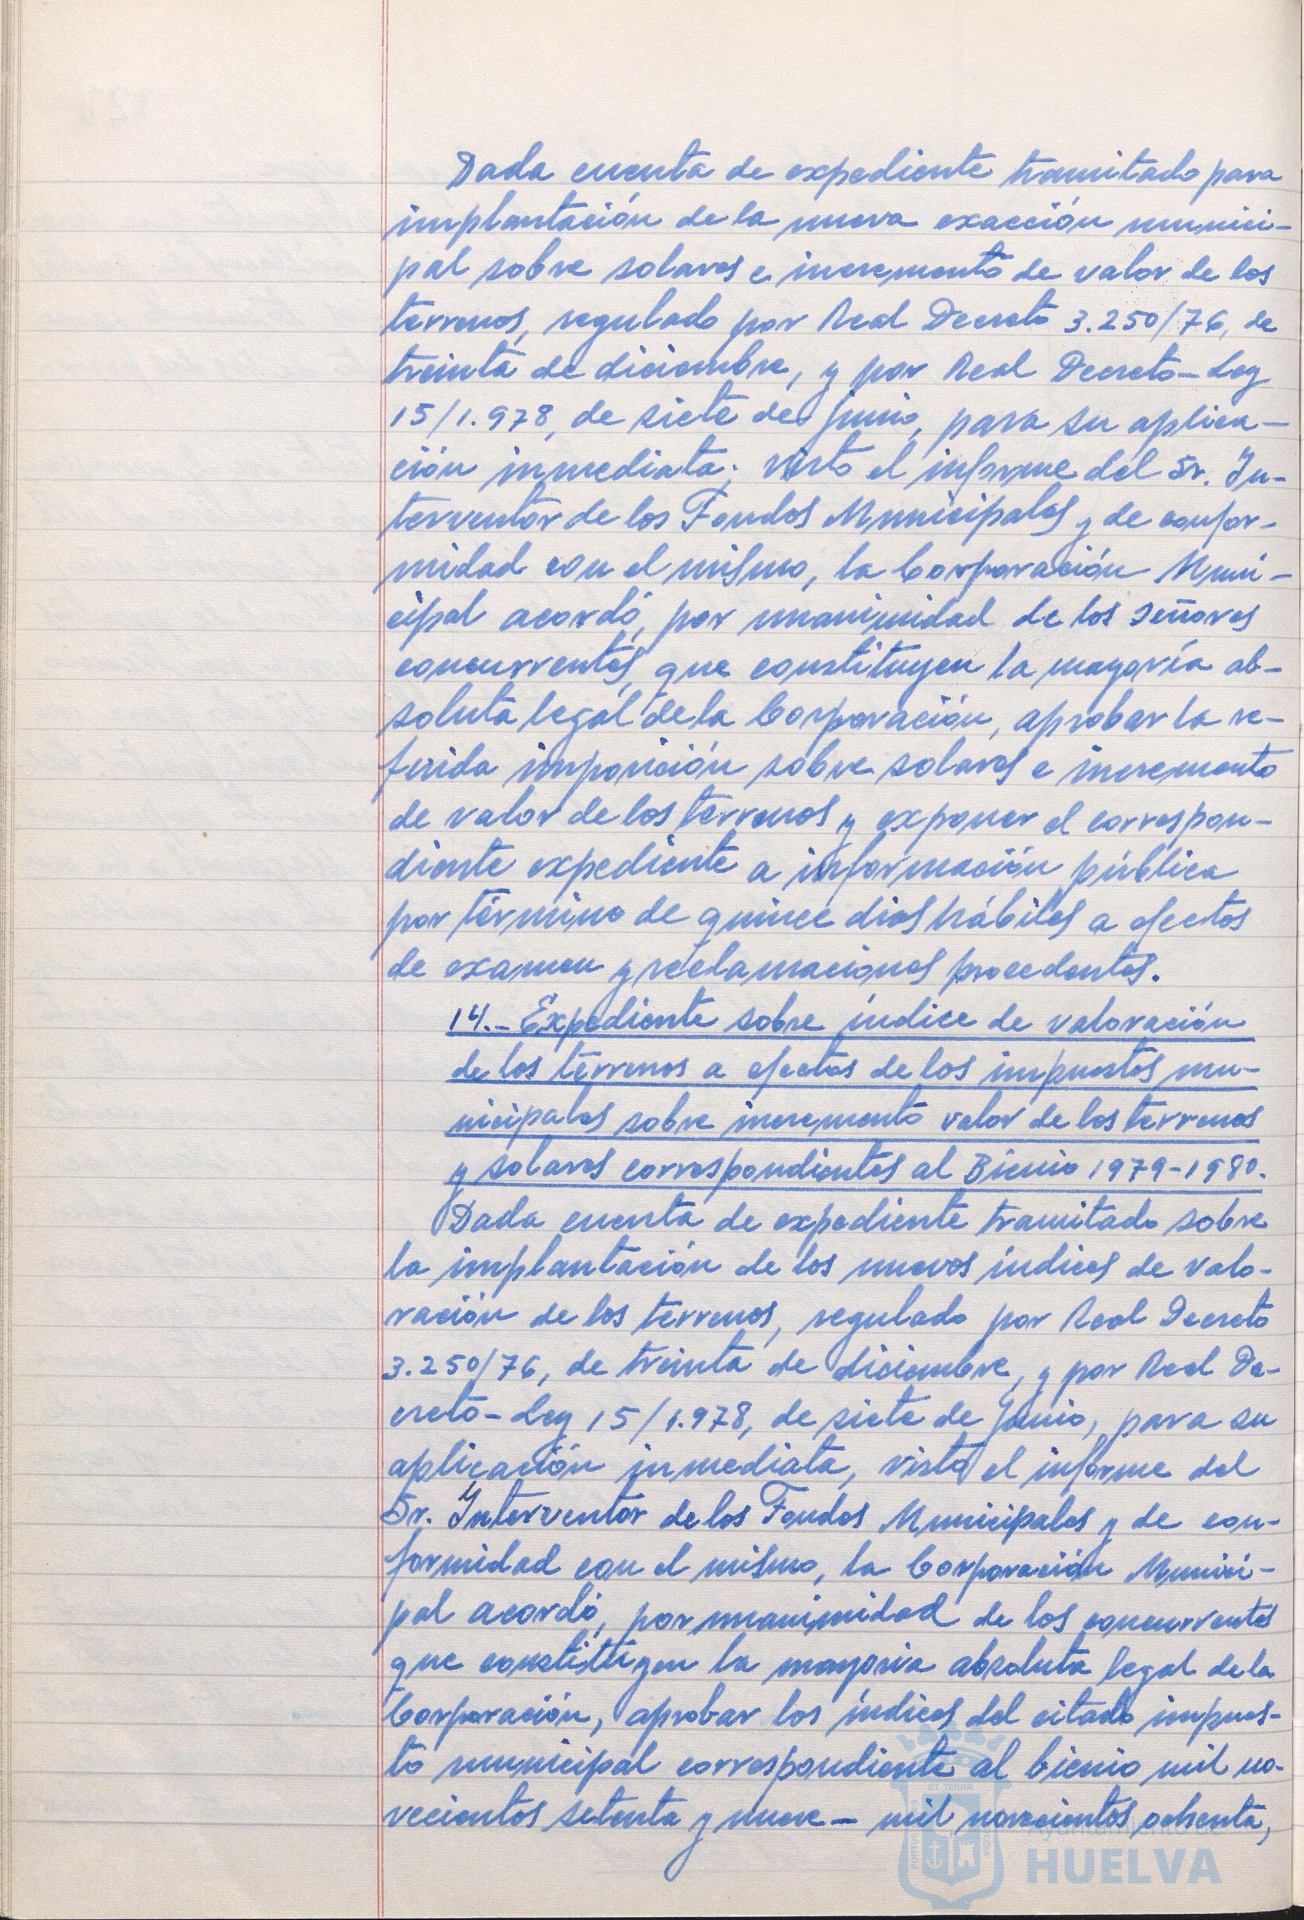 Dada cuenta de expediente tramitado para
implantación de la nueva exacción munici-
pal sobre solares e incremento de valor de los
terrenos, regulado por Real Decreto 3.250/76, de
treinta de diciembre, y por Real Decreto-Ley
15/1.978, de siete de junio, para su aplica-
ción inmediata; visto el informe del Sr. In-
terventor de los Fondos Municipales y de confor-
midad con el mismo, la Corporación Muni-
cipal acordó, por unanimidad de los señores
concurrentes, que constituyen la mayoría ab-
soluta legal de la Corporación, aprobar la re-
ferida imposición sobre solares e incremento
de valor de los terrenos y exponer el correspon-
diente expediente a información pública
por término de quince días hábiles a efectos
de examen y reclamaciones procedentes.
14.- Expediente sobre índice de valoración
de los terrenos a efectos de los impuestos mu-
nicipales sobre incremento valor de los terrenos
y solares correspondientes al Bienio 1979-1980.
Dada cuenta de expediente tramitado sobre
la implantación de los nuevos índices de valo-
ración de los terrenos, regulado por Real Decreto
3.250/76, de treinta de diciembre, y por Real De-
creto-Ley 15/1.978, de siete de Junio, para su
aplicación inmediata, visto el informe del
Sr. Interventor de los Fondos Municipales y de con-
formidad con el mismo, la Corporación Munici-
pal acordó, por unanimidad de los concurrentes
que constituyen la mayoria absoluta legal de la
Corporación, aprobar los índices del citado impues-
to municipal correspondiente al bienio mil no-
vecientos setenta y nueve - mil novecientos ochenta,
Ayuntamiento de
HUELVA